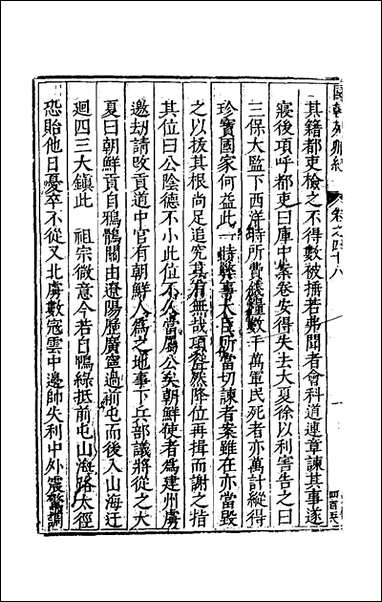 國朝列卿紀 卷之四十八
其籍都吏檢之不得數被捶若弗聞者會科道連章諫其事遂
寢後項呼都吏曰庫中案卷安得失去大夏徐以利害告之曰
三保大監下西洋時所費錢糧數千萬軍民死者亦萬計縱得
珍寶國家何益此一時弊事大臣所當切諫者案雖在亦當毀
之以拔其根尚足追究其有無哉項聳然降位再揖而謝之指
其位曰公陰德不小此位不久當屬公矣朝鮮使者為建州虜
邀劫請改貢道中官有朝鮮人為之地事下兵部議將從之大
夏曰朝鮮貢自鴉鶻關由遼陽歷廣寧過前屯而後入山海迂
迴四三大鎮此 祖宗微意今若自鴨綠抵前屯山海路太徑
恐貽他日憂卒不從又北虜數寇雲中邊帥失利中外震驚